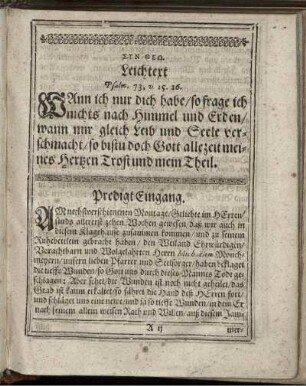 ΣΥΝ ΘΕΩ.
Leichtert
Psalm. 73. v 25. 26.
WAnn ich nur dich habe / so frage ich
nichts nach Himmel und Erden /
wann mir gleich Leib und Seele ver-
schmacht / so bistu doch Gott allezeit mei-
nes Hertzen Trost und mein Theil.
Predigt Eingang.
AM nechstverschienenen Montage / Geliebte im HErren /
sind allererst zehen Wochen gewesen / daß wir auch in
diesem Klaghause zusamen kommen / und zu seinem
Ruhebetlein gebracht haben / den Weiland Ehrwürdigen /
Vorachtbarn und Wolgelahrten Herren
unsern lieben Pfarrer und Seelsorger / haben beklaget
die tieffe Wunden / so Gott uns durch dieses Mannes Tod ge-
schlagen: Aber sehet / die Wunden ist noch nicht geheilet / das
Grab ist kaum erkaltet / so fähret die Hand deß HErren fort /
und schläget uns eine newe / und ja so tieffe Wunden / in dem Er
nach seinem allein weisen Rath und Willen / auß diesem Jam-
A ij
mer-